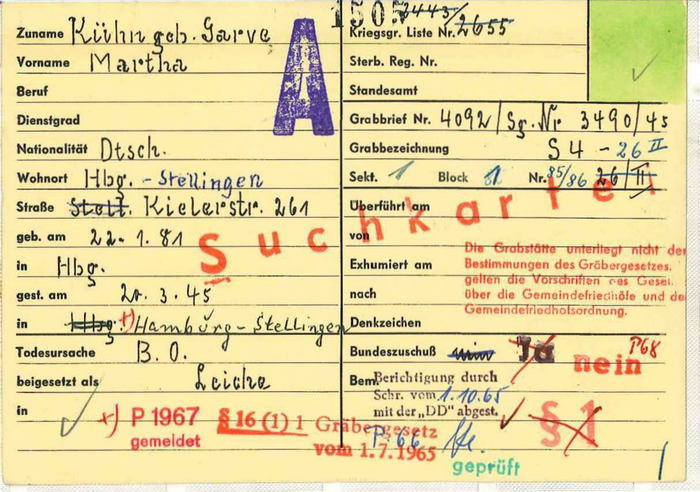 Zuname Kühn geb. Garve
Vorname Martha
Beruf
Dienstgrad
Nationalität Dtsch.
Wohnort Hbg. - Stellingen
Straße Stell. Kielerstr. 261
geb. am 22. 1. 81
in Hbg.
gest. am 20. 3. 45
in Hbg. x) Hamburg - Stellingen
Todesursache B. O.
beigesetzt als Leiche
in
x) P 1967
gemeldet
A
150
2443/
Kriegsgr. Liste Nr. 2655
Sterb. Reg. Nr.
Standesamt
Grabbrief Nr. 4092 / Sg. Nr. 3490/45
Grabbezeichnung S 4 - 26 II
Sekt. 1 Block 1 Nr. 85/86 26/II
Suchkartei
Überführt am
von
Exhumiert am
nach
Denkzeichen
Die Grabstätte unterliegt nicht der
Bestimmungen des Gräbergesetzes.
gelten die Vorschriften des Geset.
über die Gemeindefriedhöfe und de
Gemeindefriedhofsordnung.
Bundeszuschuß Ja nein P68
Bem. Berichtigung durch
Schr. vom 1.10.65
mit der „DD" abgest.
§ 1
§ 16 (1) 1 Gräbergesetz
vom 1.7.1965
P. 66
geprüft